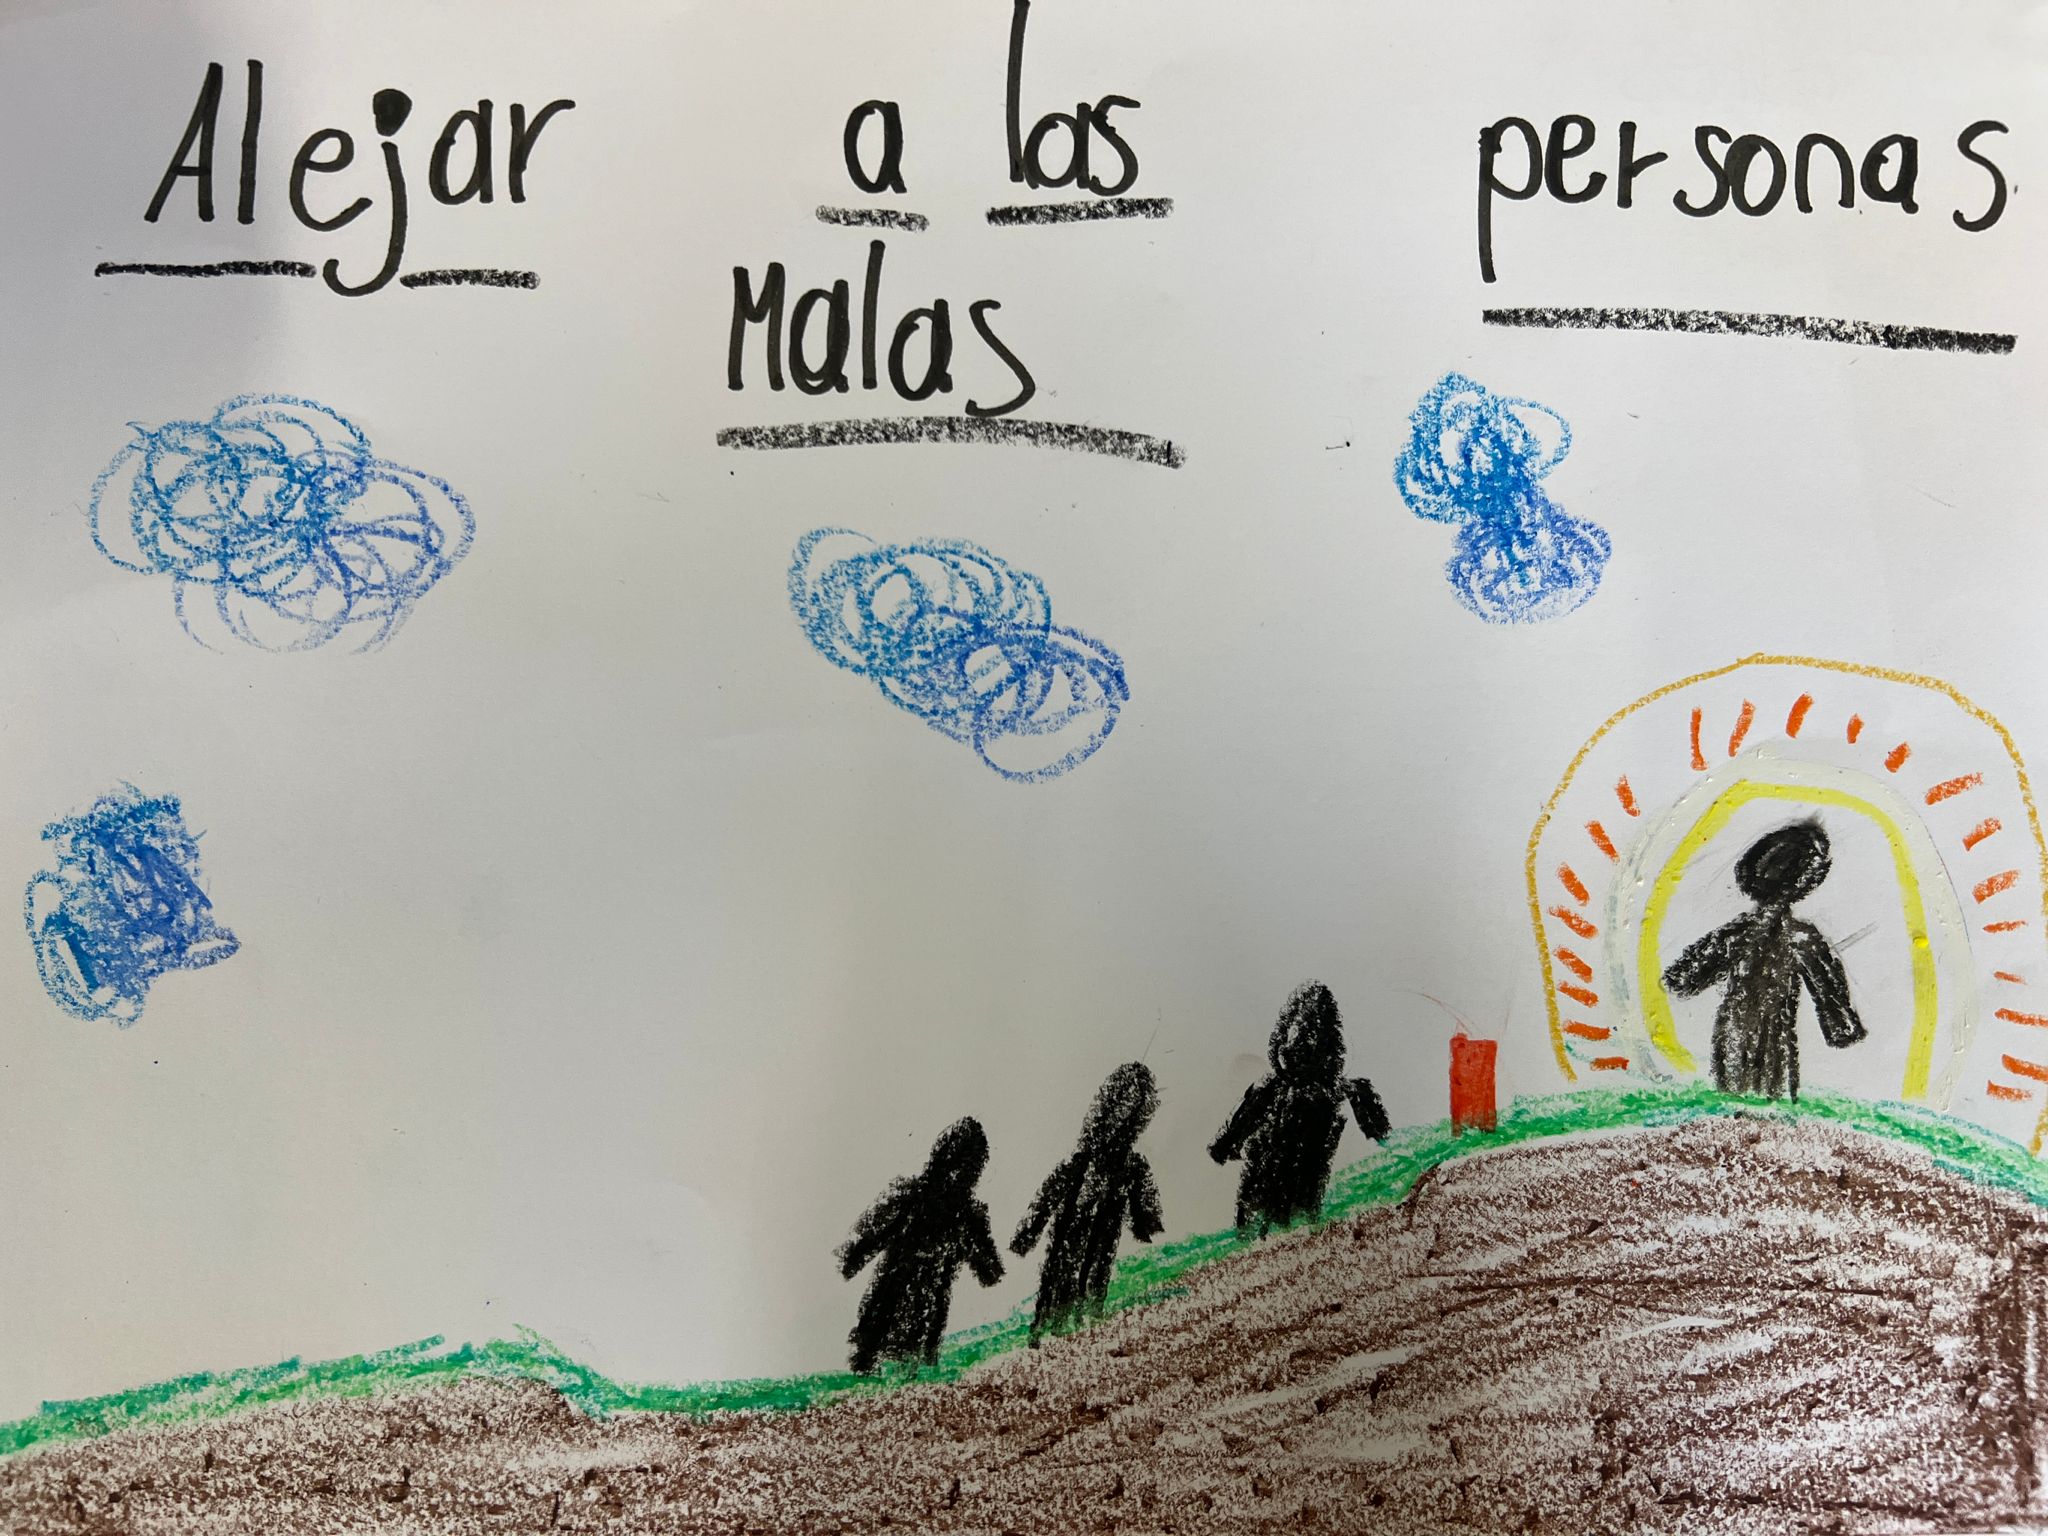 Alejar a las personas
Malas